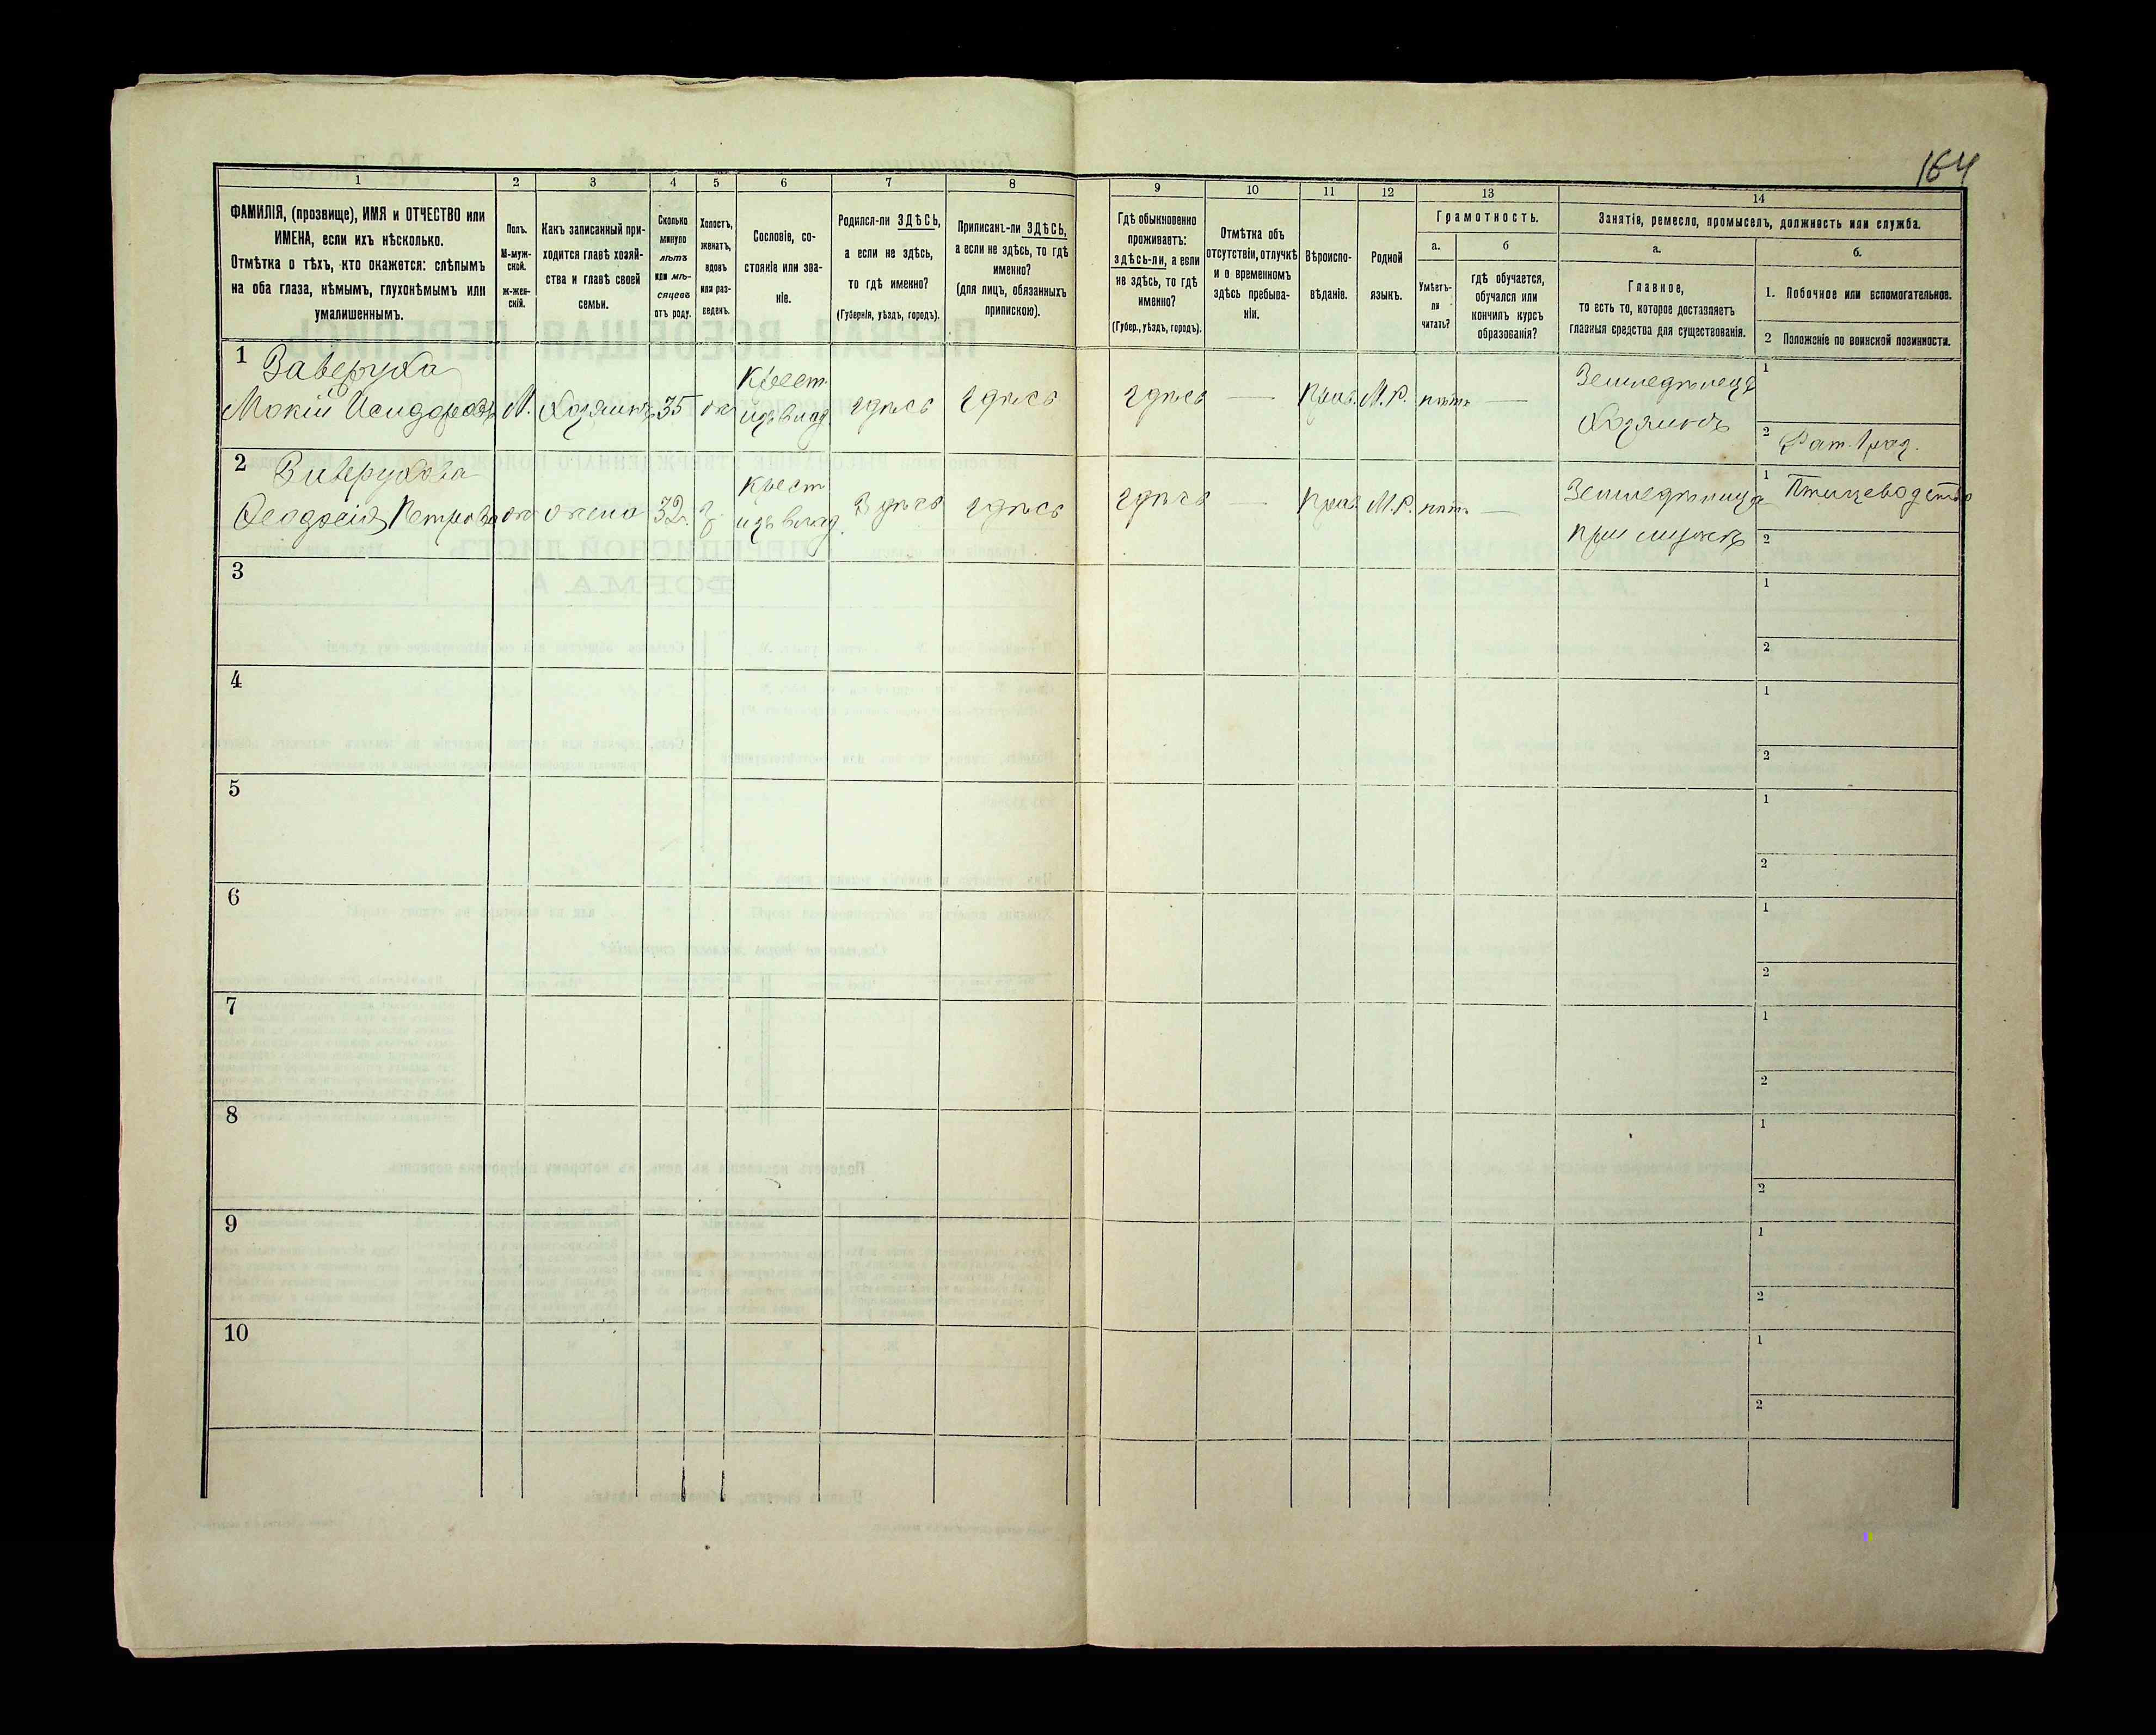 164
1 2 3 4 5 6 7 8 9 10 11 12 13 14
ФАМИЛІЯ, (прозвище), ИМЯ и ОТЧЕСТВО или
ИМЕНА, если ихъ нѣсколько.
Отмѣтка о тѣхъ, кто окажется: слѣпымъ
на оба глаза, нѣмымъ, глухонѣмымъ или
умалишеннымъ.
Полъ.
М-муж-
ской.
ж-жен-
скій.
Какъ записанный при-
ходится главѣ хозяй-
ства и главѣ своей
семьи.
Сколько
минуло
лѣтъ
или мѣ-
сяцевъ
отъ роду.
Холостъ,
женатъ,
вдовъ
или раз-
веденъ.
Сословіе, со-
стояніе или зва-
ніе.
Родился-ли ЗДѢСЬ,
а если не здѣсь,
то гдѣ именно?
(Губернія, уѣздъ, городъ).
Приписанъ-ли ЗДѢСЬ,
а если не здѣсь, то гдѣ
именно?
(для лицъ, обязанныхъ
припискою).
Гдѣ обыкновенно
проживаетъ:
здѣсь-ли, а если
не здѣсь, то гдѣ
именно?
(Губер., уѣздъ, городъ).
Отмѣтка объ
отсутствіи, отлучкѣ
и о временномъ
здѣсь пребыва-
ніи.
Вѣроиспо-
вѣданіе.
Родной
языкъ.
Грамотность.
а.
Умѣетъ-
ли
читать?
б
гдѣ обучается,
обучался или
кончилъ курсъ
образованія?
Занятіе, ремесло, промыселъ, должность или служба.
а.
Главное,
то есть то, которое доставляетъ
главныя средства для существованія.
б.
1. Побочное или вспомогательное.
2 Положеніе по воинской повинности.
1 Заверуха Крест. Земледѣлецъ 1
Мокій Исидоровъ М. Хозяинъ 35 ж изъ влад. здѣсь здѣсь здѣсь — Прав. М.Р. нѣтъ —
Хозяинъ 2 Рат. 1 раз.
2 Заверухова Крест Земледѣлица 1 Птицеводство
Ѳеодосія Петрова ж жена 32 з изъ влад. Здѣсь здѣсь здѣсь — Прав. М.Р. нѣтъ —
при мужѣ 2
3 1
2
4 1
2
5 1
2
6 1
2
7 1
2
8 1
2
9 1
2
10 1
2